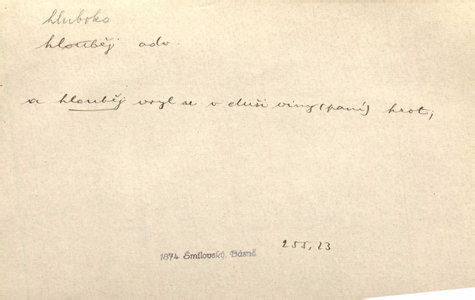 hluboko
hlouběj adv.
a hlouběj vryl se v duši viny (paní) hrot,
255, 23
1874 Šmilovský, Básně